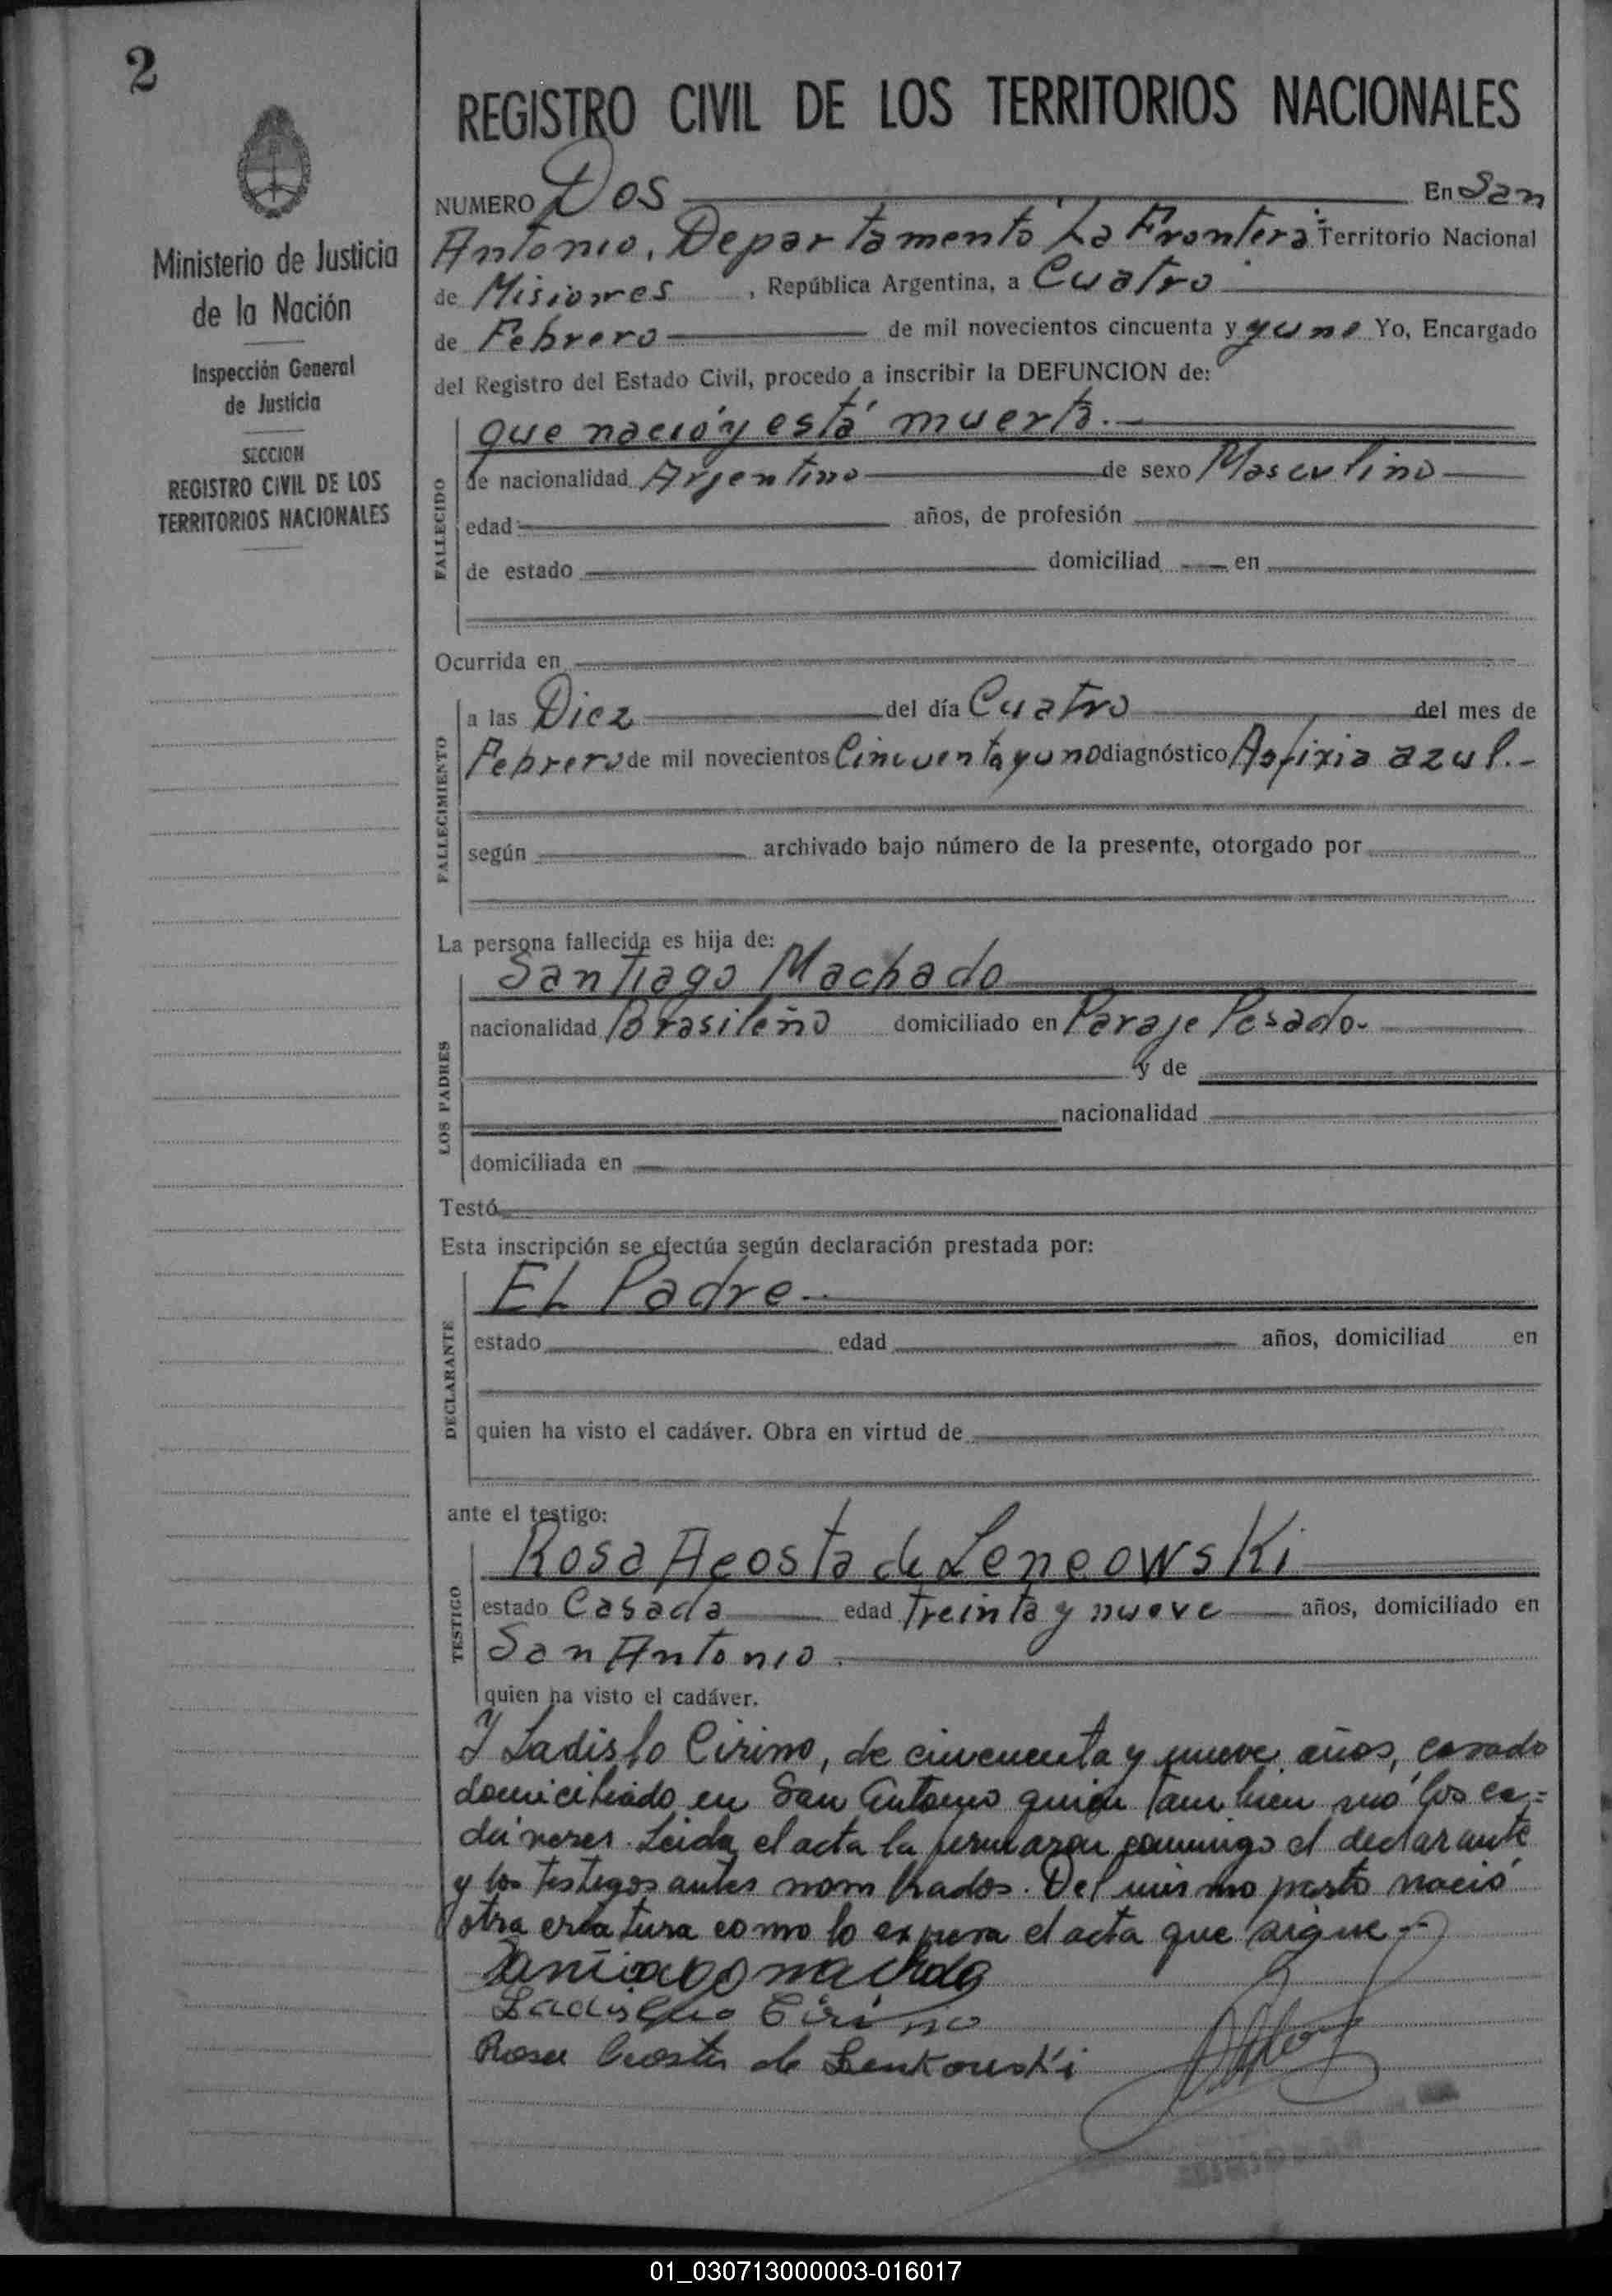 2
REGISTRO CIVIL DE LOS TERRITORIOS NACIONALES
Ministerio de Justicia
de la Nación
Inspección General
de Justicia
SECCION
REGISTRO CIVIL DE LOS
TERRITORIOS NACIONALES
NUMERO Dos En San
Antonio, Departamento La Frontera Territorio Nacional
de Misiones, República Argentina, a Cuatro
de Febrero de mil novecientos cincuenta y y uno Yo, Encargado
del Registro del Estado Civil, procedo a inscribir la DEFUNCION de:
FALLECIDO
que nació y está muerto.
de nacionalidad Argentino de sexo Masculino
edad años, de profesión
de estado domiciliad en
Ocurrida en
FALLECIMIENTO
a las Diez del día Cuatro del mes de
Febrero de mil novecientos Cincuenta y uno diagnóstico Asfixia azul.-
según archivado bajo número de la presente, otorgado por
La persona fallecida es hija de:
LOS PADRES
Santiago Machado
nacionalidad Brasileño domiciliado en Paraje Pesado.
y de
nacionalidad
domiciliada en
Testó
Esta inscripción se efectúa según declaración prestada por:
DECLARANTE
El Padre
estado edad años, domiciliad en
quien ha visto el cadáver. Obra en virtud de
ante el testigo:
TESTIGO
Rosa Acosta de Lencowski
estado Casada edad treinta y nueve años, domiciliado en
San Antonio.
quien ha visto el cadáver.
Y Ladislo Cirino, de cincuenta y nueve años, casado
domiciliado en San Antonio quien tambien vió los ca=
dáveres. Leida el acta la firmaron conmigo el declarante
y los testigos antes nombrados. Del mismo parto nació
otra criatura como lo expresa el acta que sigue.-
Santiago machado
Ladislao Cirino
Rosa Acosta de Lenkowski
01_030713000003-016017